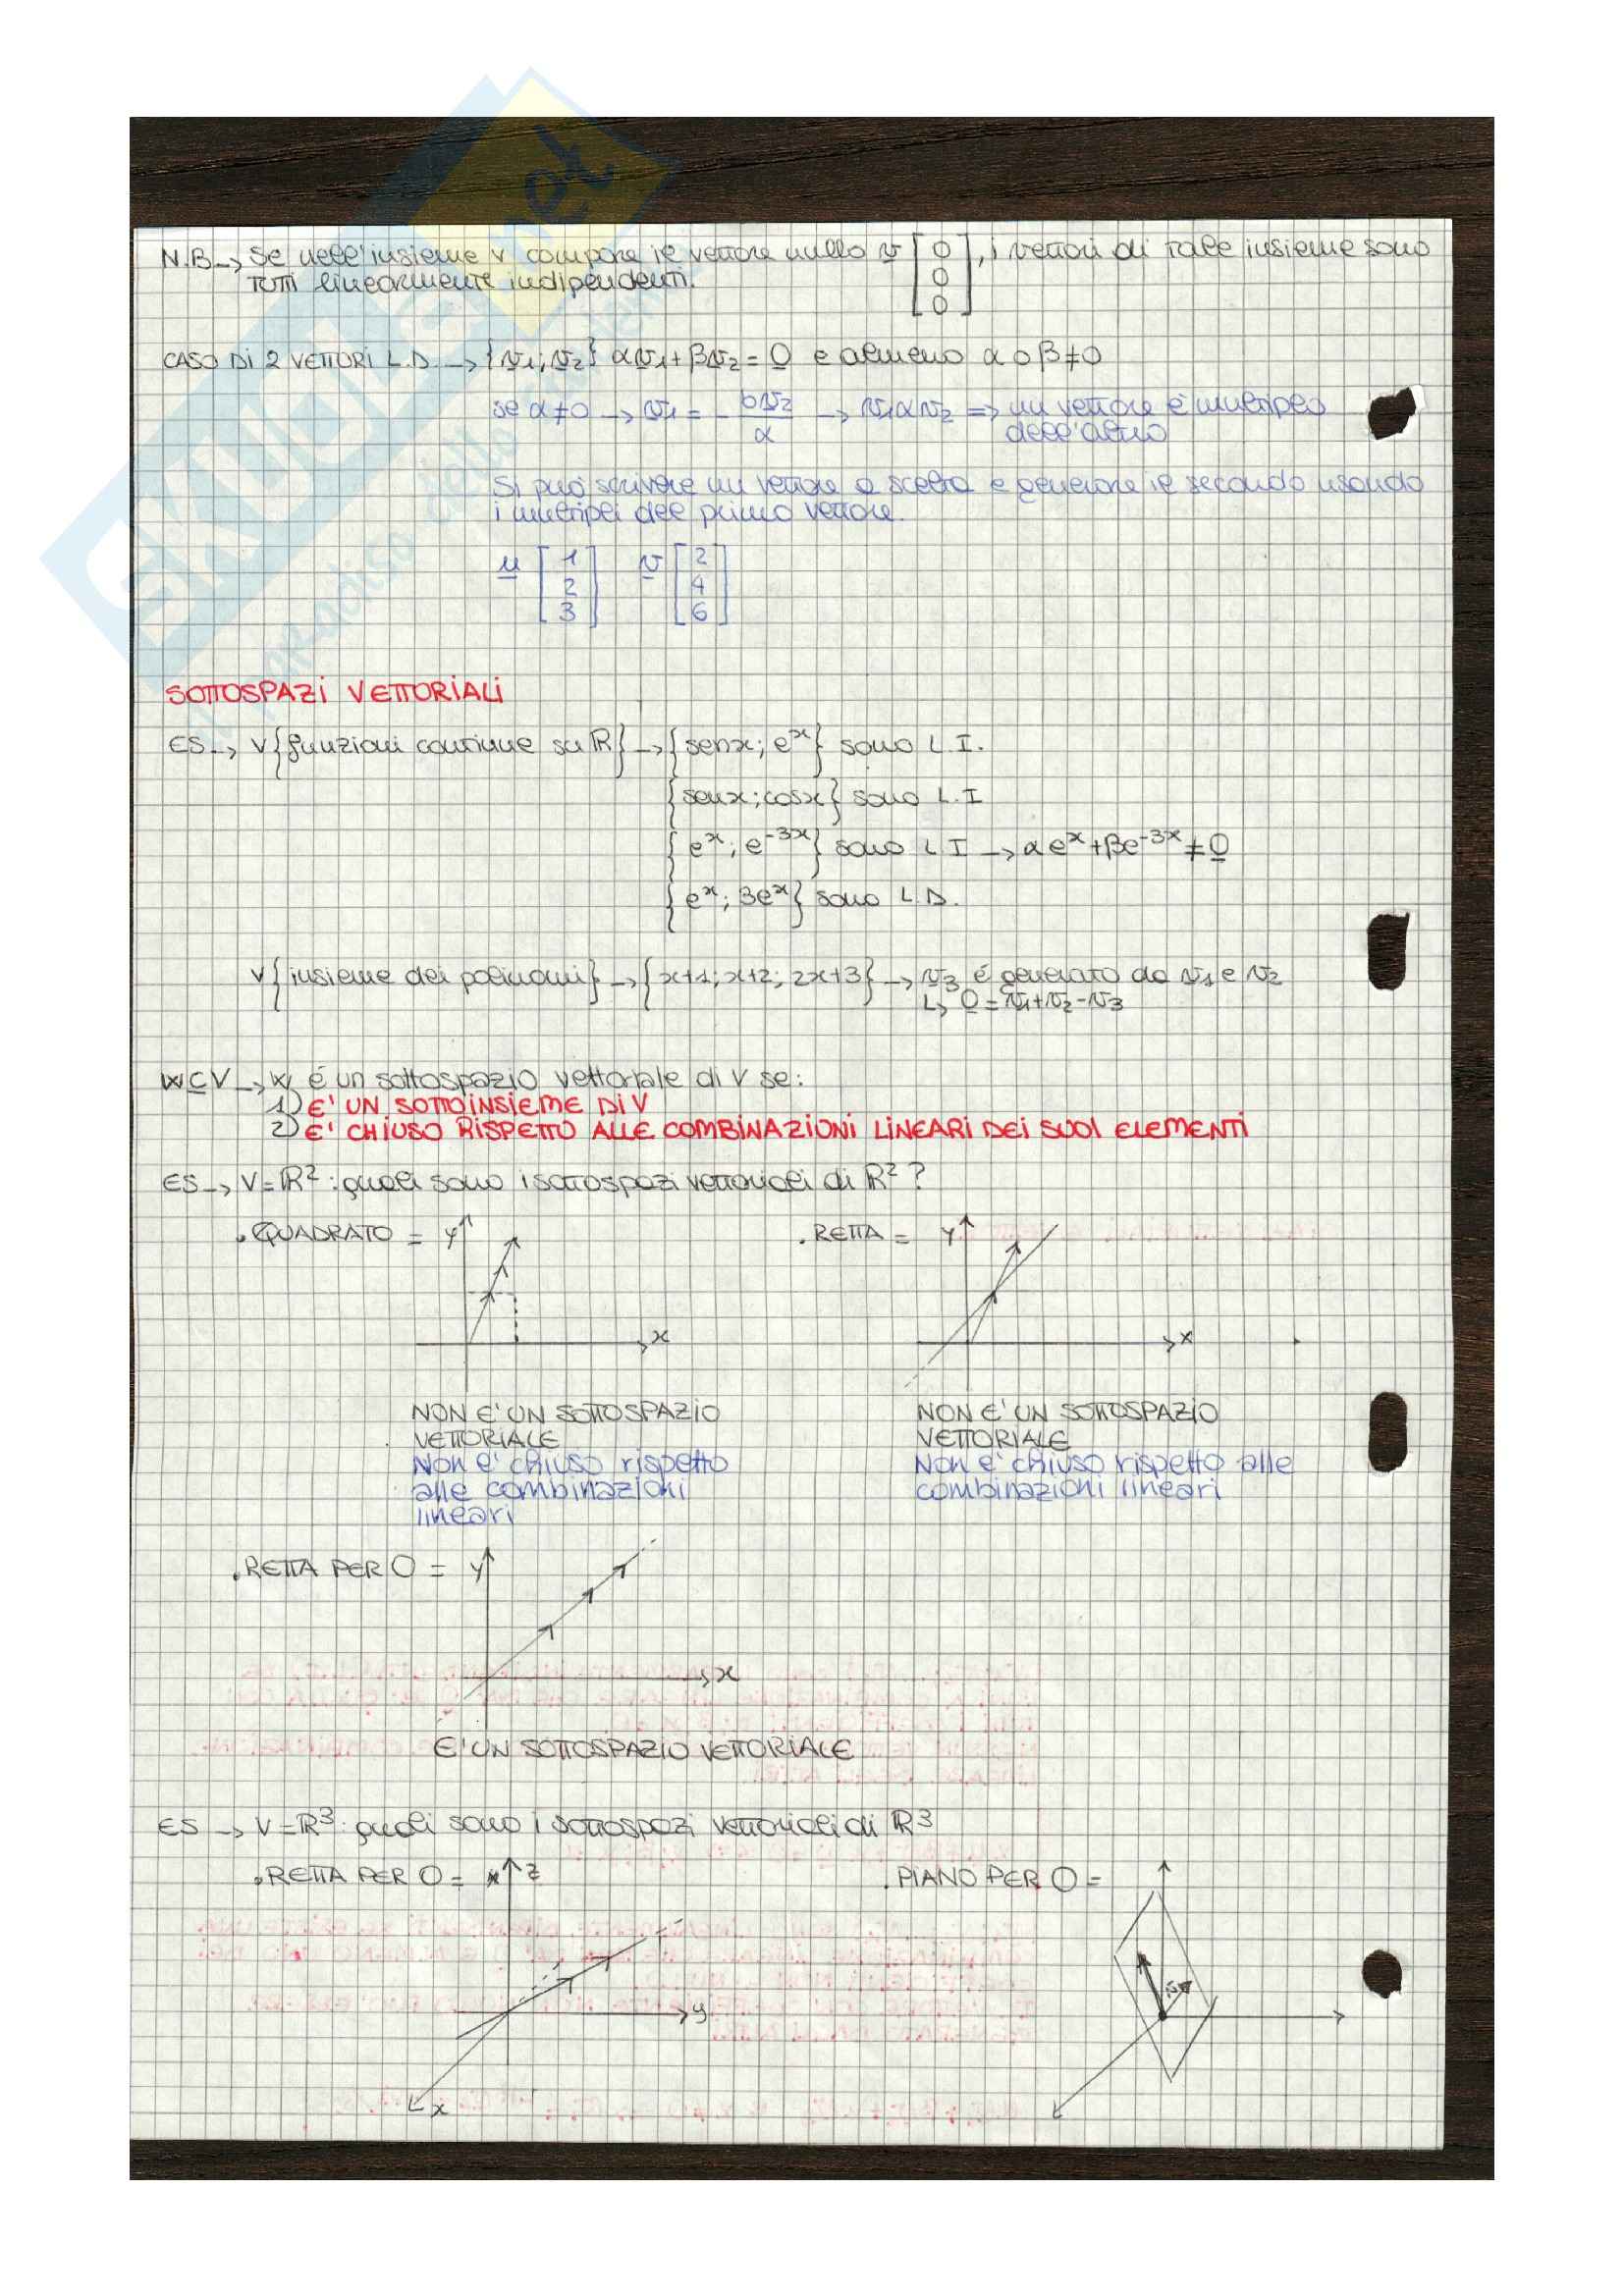 N.B → Se nell'insieme V compare il vettore nullo v [0 0 0], i vettori di tale insieme sono
tutti linearmente indipendenti.
CASO DI 2 VETTORI L.D. → {v1; v2} αv1 + βv2 = 0 e almeno α o β ≠ 0
se α ≠ 0 → v1 = - bv2/α → v1 α v2 => un vettore è multiplo
dell'altro
Si può scrivere un vettore a scelta e generare il secondo usando
i multipli del primo vettore.
u [1 2 3] v [2 4 6]
SOTTOSPAZI VETTORIALI
ES → V{funzioni continue su ℝ} → {senx; e^x} sono L.I.
{senx; cosx} sono L.I
{e^x; e^-3x} sono L I → αe^x + βe^-3x ≠ 0
{e^x; 3e^x} sono L.D.
V{insieme dei polinomi} → {x+1; x+2; 2x+3} → v3 è generato da v1 e v2
↳ 0 = v1 + v2 - v3
W ⊆ V → W è un sottospazio vettoriale di V se:
1) E' UN SOTTOINSIEME DI V
2) E' CHIUSO RISPETTO ALLE COMBINAZIONI LINEARI DEI SUOI ELEMENTI
ES → V = ℝ² : quali sono i sottospazi vettoriali di ℝ² ?
. QUADRATO = y x
. RETTA = y x
NON E' UN SOTTOSPAZIO
VETTORIALE
Non e' chiuso rispetto
alle combinazioni
lineari
NON E' UN SOTTOSPAZIO
VETTORIALE
Non e' chiuso rispetto alle
combinazioni lineari
. RETTA PER O = y
x
E' UN SOTTOSPAZIO VETTORIALE
ES → V = ℝ³ : quali sono i sottospazi vettoriali di ℝ³
. RETTA PER O = z
y
x
. PIANO PER O =
SKUOLA.net
il paradiso dello studente